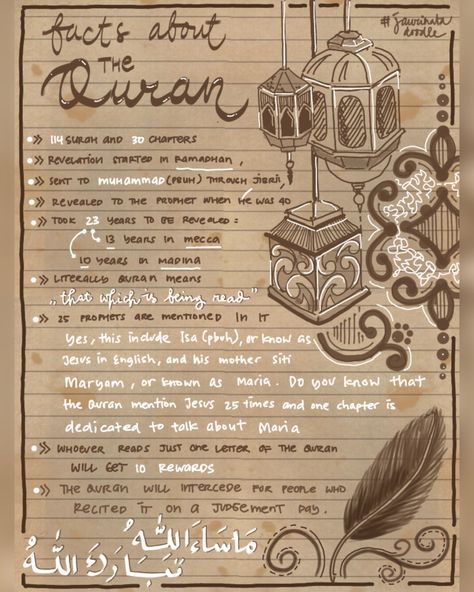 facts about
THE
Quran
#jawihata
doodle
114 SURAH AND 30 CHAPTERS
REVELATION STARTED IN RAMADHAN,
SENT TO MUHAMMAD (PBUH) THROUGH JIBRIL,
REVEALED TO THE PROPHET WHEN HE WAS 40
TOOK 23 YEARS TO BE REVEALED:
13 YEARS IN MECCA
10 YEARS IN MADINA
LITERALLY QURAN MEANS
„that which is being read"
25 PROPHETS ARE MENTIONED IN IT
Yes, this include Isa (pbuh), or know as
Jesus in English, and his mother Siti
Maryam, or known as Maria. Do you know that
the Quran mention Jesus 25 times and one chapter is
dedicated to talk about Maria
WHOEVER READS JUST ONE LETTER OF THE QURAN
WILL GET 10 REWARDS
THE QURAN WILL INTERCEDE FOR PEOPLE WHO
RECITED IT ON A JUDGEMENT DAY.
مَاسَاءَ اللّٰهُ
تَبَارَكَ اللّٰهُ